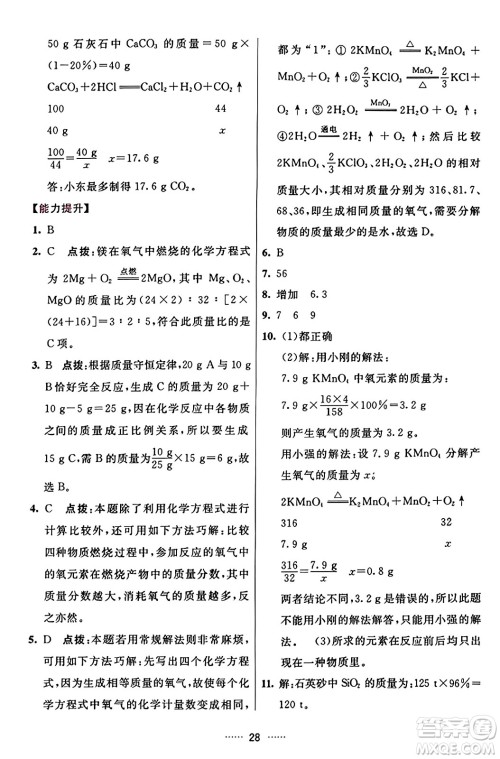 50 g 石灰石中 CaCO₃ 的质量=50 g×
(1-20%)=40 g
CaCO₃+2HCl══CaCl₂+H₂O+CO₂↑
100 44
40 g x
100/44=40 g/x x=17.6 g
答:小东最多制得 17.6 g CO₂。
【能力提升】
1. B
2. C 点拨:镁在氧气中燃烧的化学方程式
为 2Mg+O₂ ═点燃═ 2MgO,则 Mg、O₂、
MgO 的质量比为(24×2)∶32∶[2×
(24+16)]=3∶2∶5。
3. B 点拨:根据质量守恒定律,20 g A 与
B 恰好完全反应,在化学反应中各物质
之间的质量成正比例关系,所以生成
15 g C 时,需要 A 与 B 共 10 g,所以
选 B。
4. C 点拨:本题除了利用化学方程式进行
计算比较外,还可以用如下方法巧解:比较
四种物质燃烧过程中,参加反应的氧气中
的氧元素在燃烧产物中的质量分数,质量
分数越大,消耗氧气的质量越多,反之
亦然。
5. D 点拨:本题若用常规解法则非常麻烦,
可用如下方法巧解:先写出四个化学方程
式,若四个化学方程式中氧气的化学计量
数不同,使四个化学方程式中氧气的化学计量数
都为“1”:① 2KMnO₄ ═△═ K₂MnO₄+
MnO₂+O₂↑ ② 2/3KClO₃ ═MnO₂/△═ 2/3KCl+
O₂↑ ③ 2H₂O₂ ═MnO₂═ 2H₂O+O₂↑
④ 2H₂O ═通电═ 2H₂↑+O₂↑
质量大小,其相对质量分别为 316、81.7、
68、36,所以制取相同质量的氧气,需要分解
物质的质量最少的是水,故选 D。
6. B
7. 56
8. 增加 6.3
9. 7 6 9
10. (1)都正确
(2)解:用小刚的解法:
7.9 g KMnO₄ 中氧元素的质量为:
7.9 g×16×4/158×100%=3.2 g
则产生氧气的质量为 3.2 g。
用小强的解法:设 7.9 g KMnO₄ 完全反应
产生氧气的质量为 x。
2KMnO₄ ═△═ K₂MnO₄+MnO₂+O₂↑
316 32
7.9 g x
316/32=7.9 g/x x=0.8 g
两者结论不同,3.2 g 是错误的,所以不
能用小刚的解法,可用小强的解法。
(3)所求的元素在反应前后必须在同一
种物质里
11. 解:石英砂中 SiO₂ 的质量为:125 t×96%=
120 t。
28